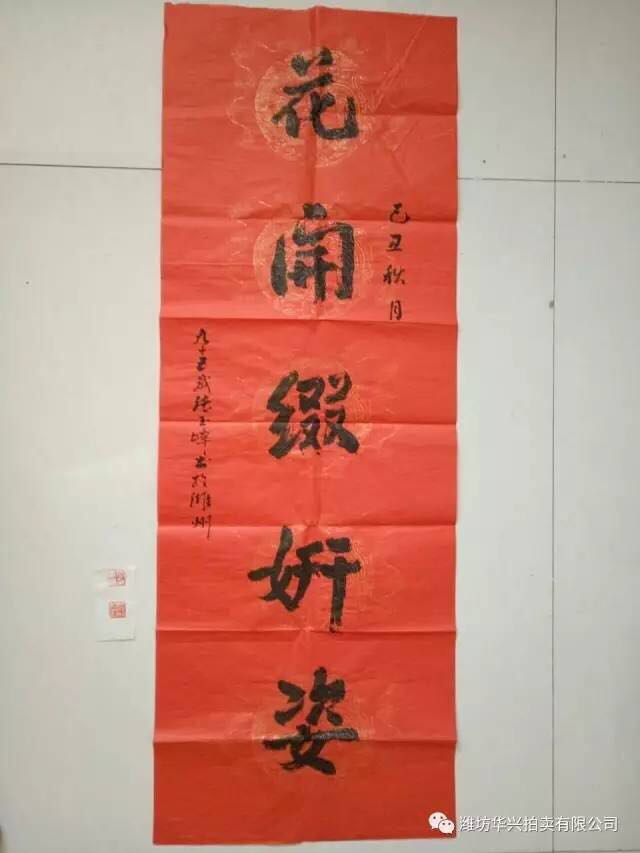 己丑秋月
花開綴妍姿
九十五歲 玉 书於濰州
潍坊华兴拍卖有限公司